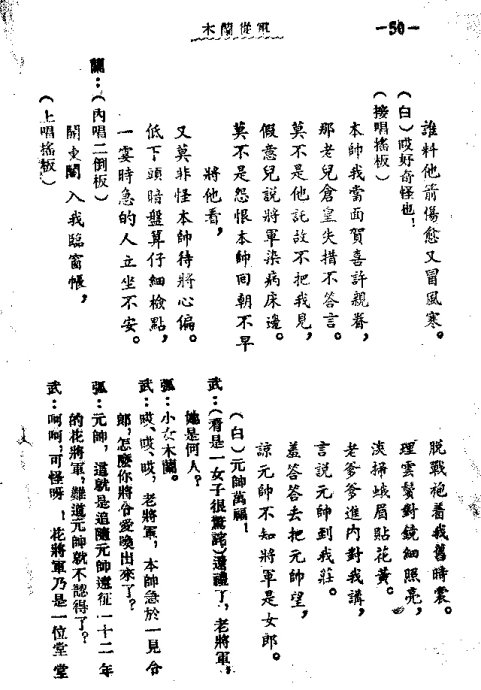 木蘭從軍
—50—
誰料他前傷愈又冒風寒。
(白)哎好奇怪也!
(接唱搖板)
本帥我當面賀喜許親眷,
那老兒倉皇失措不答言。
莫不是他託故不把我見,
假意兒說將軍染病床邊。
莫不是怨恨本帥回朝不早
將他看,
又莫非怪本帥待將心偏。
低下頭暗盤算仔細檢點,
一霎時急的人立坐不安。
蘭:(內唱二倒板)
開東閣入我臨窗帳,
(上唱搖板)
脫戰袍着我舊時裳。
理雲鬢對鏡細照亮,
淡掃蛾眉貼花黃。
老爹爹進內對我講,
言說元帥到我莊。
羞答答去把元帥望,
諒元帥不知將軍是女郎。
(白)元帥萬福!
武:(看是一女子很驚詫)還禮了,老將軍,
她是何人?
弧:小女木蘭。
武:哎、哎、哎,老將軍,本帥急於一見令
郎,怎麼你將令愛喚出來了?
弧:元帥,這就是追隨元帥遠征一十二年
的花將軍,難道元帥就不認得了?
武:呵呵,可怪呀!花將軍乃是一位堂堂